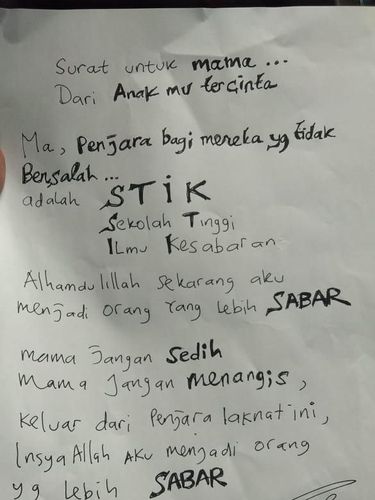 Surat untuk mama ...
Dari Anak mu tercinta
Ma, Penjara bagi mereka yg tidak
Bersalah ...
adalah STIK
Sekolah Tinggi
Ilmu Kesabaran
Alhamdulillah Sekarang aku
menjadi orang Yang Lebih SABAR
mama Jangan Sedih
Mama Jangan menangis,
Keluar dari Penjara laknat ini,
Insya Allah AKu menjadi orang
yg Lebih SABAR